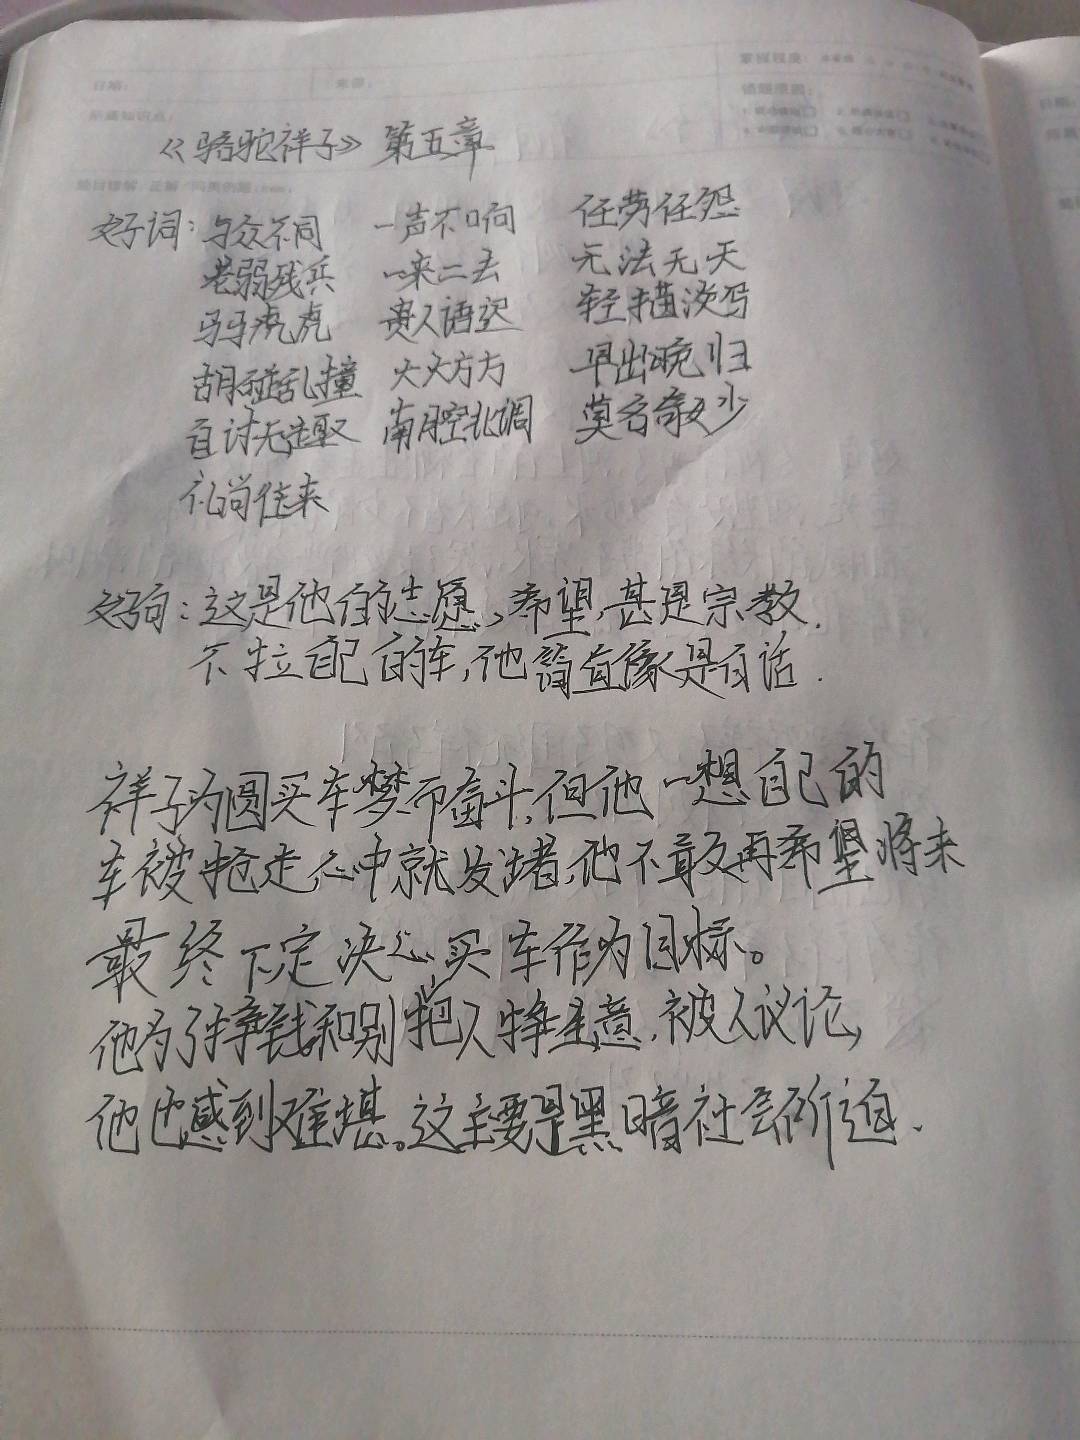 《骆驼祥子》第五章
好词：与众不同 一声不响 任劳任怨
老弱残兵 一来二去 无法无天
马马虎虎 贵人语迟 轻描淡写
胡碰乱撞 大大方方 早出晚归
自讨无趣 南腔北调 莫名其妙
礼尚往来
好句：这是他的志愿、希望，甚是宗教.
不拉自己的车，他简直像是白活.
祥子为圆买车梦而奋斗，但他一想自己的
车被抢走，心中就发堵，他不敢再希望将来
最终下定决心，买车作为目标。
他为了挣钱和别把人抢生意，被人议论，
他也感到难堪。这主要是黑暗社会所迫.